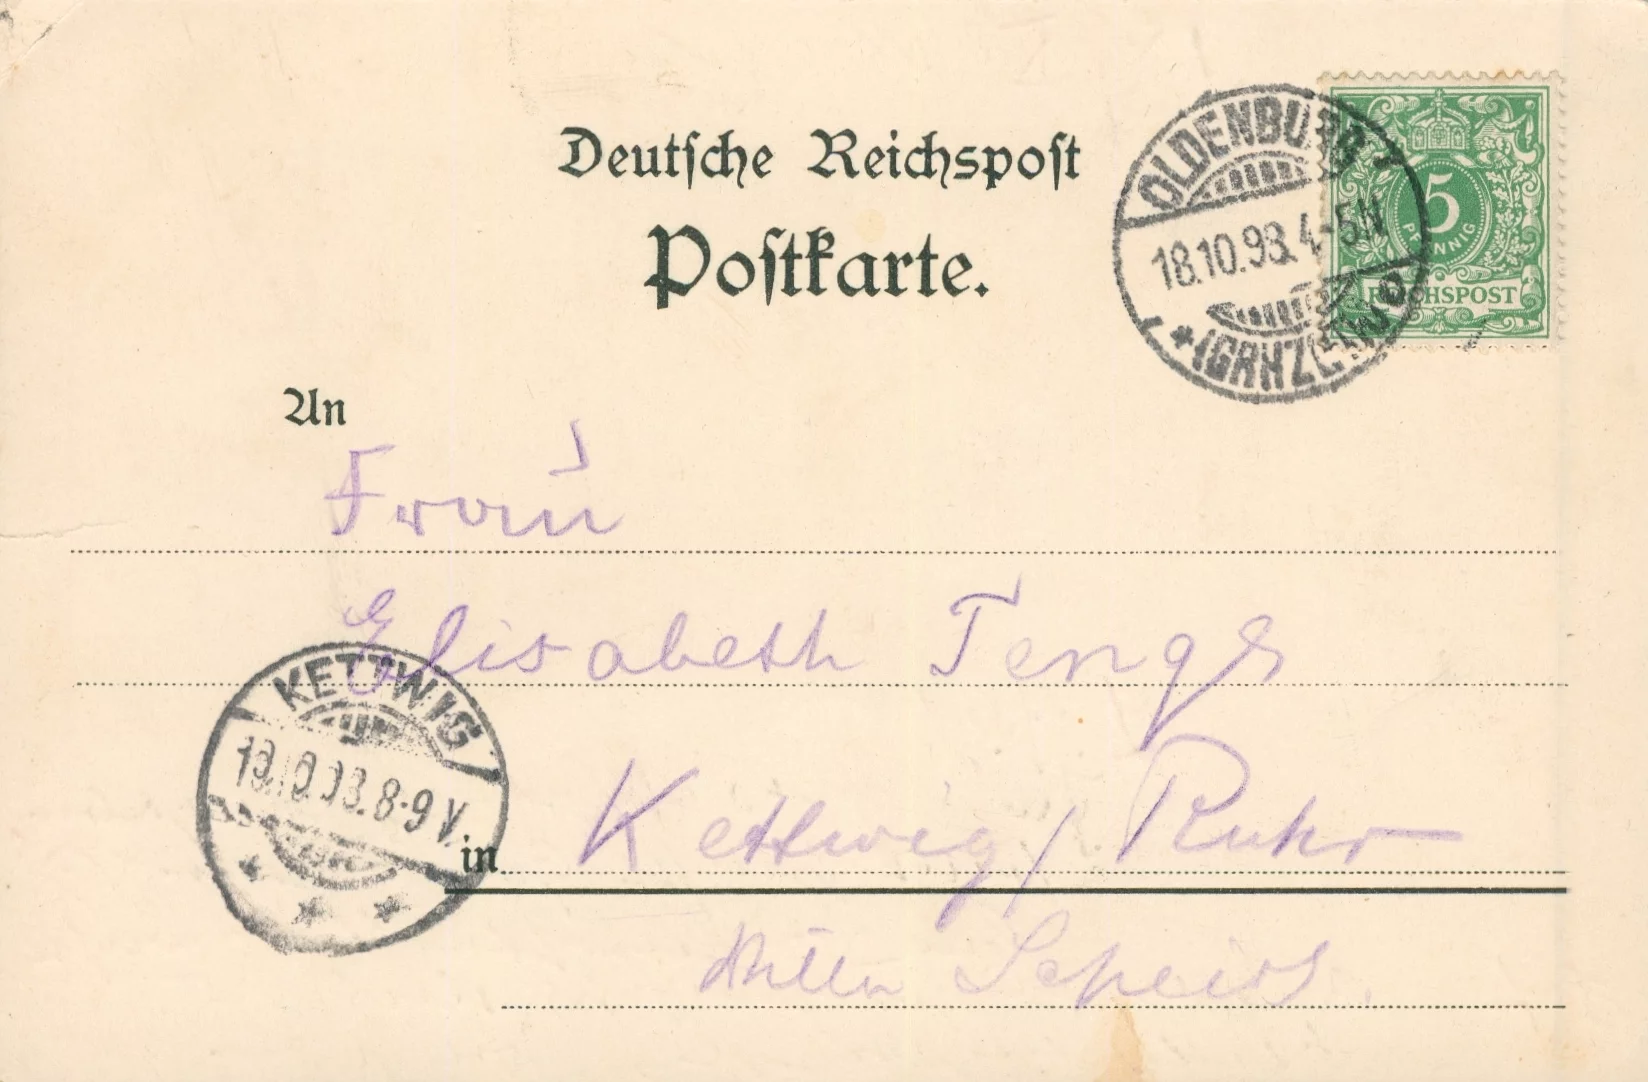 Deutsche Reichspost
Postkarte.
OLDENBURG
18.10.98. 4-5N
*(GRHZGTM)
5
PFENNIG
REICHSPOST
An
Frau
Elisabeth Tengs
KETTWIG
8-9 V.
in Kettwig / Ruhr